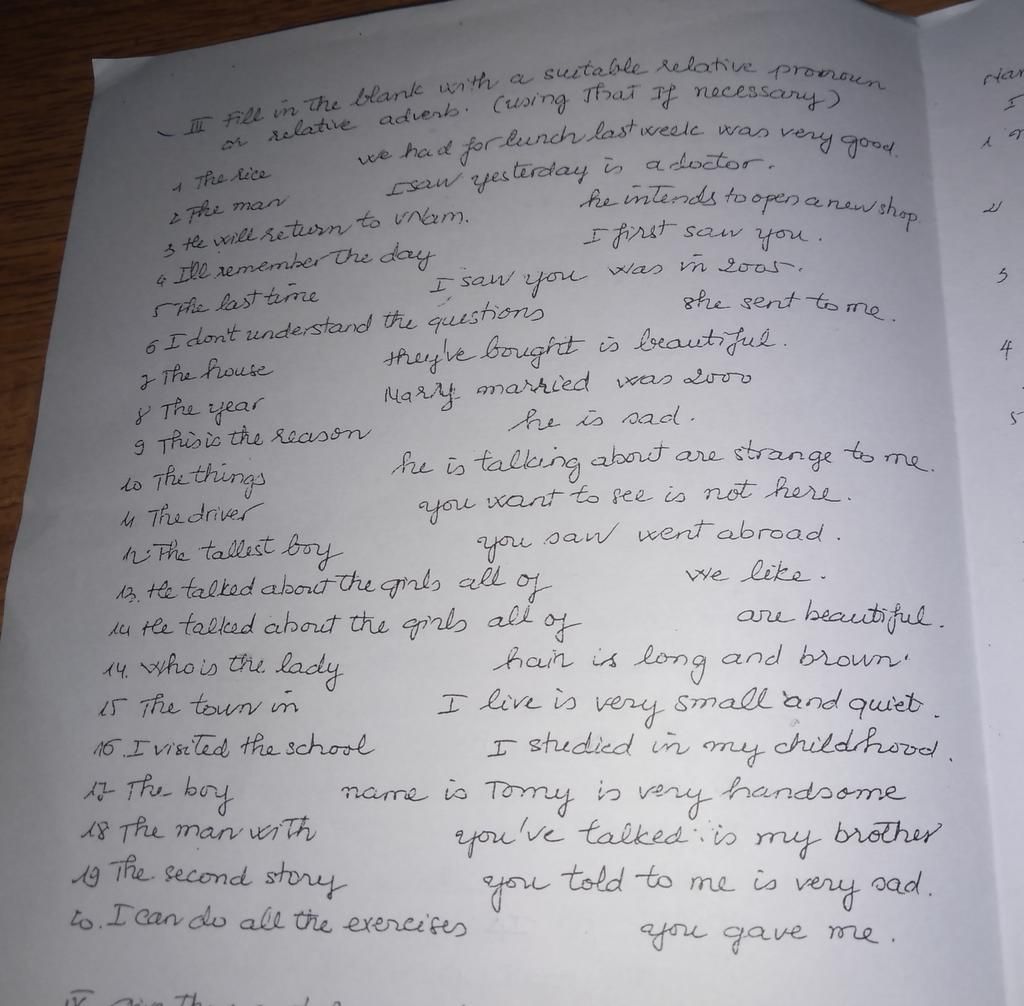 III Fill in the blank with a suitable relative pronoun
or relative adverb. (using That If necessary)
1 The rice we had for lunch last week was very good.
2 The man I saw yesterday is a doctor.
3 He will return to VNam. he intends to open a new shop.
4 I'll remember the day I first saw you.
5 The last time I saw you was in 2005.
6 I don't understand the questions she sent to me.
7 The house they've bought is beautiful.
8 The year Marry married was 2000
9 This is the reason he is sad.
10 The things he is talking about are strange to me.
11 The driver you want to see is not here.
12. The tallest boy you saw went abroad.
13. He talked about the girls all of we like.
14 He talked about the girls all of are beautiful.
14. Who is the lady hair is long and brown.
15 The town in I live is very small and quiet.
16. I visited the school I studied in my childhood.
17 The boy name is Tomy is very handsome
18 The man with you've talked is my brother
19 The second story you told to me is very sad.
20. I can do all the exercises you gave me.
IV
1
2
3
4
5